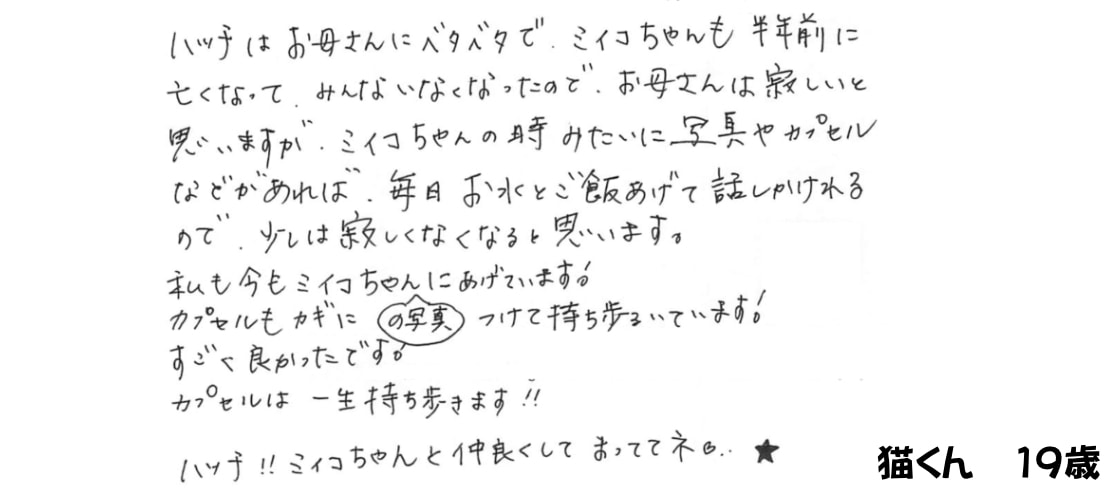 ハッチはお母さんにベタベタで、ミイコちゃんも半年前に
亡くなって、みんないなくなったので、お母さんは寂しいと
思いますが、ミイコちゃんの時みたいに写真やカプセル
などがあれば、毎日お水とご飯あげて話しかけれる
ので、少しは寂しくなくなると思います。
私も今もミイコちゃんにあげています!
の写真
カプセルもカギにつけて持ち歩るいています!
すごく良かったです!
カプセルは一生持ち歩きます!!
ハッチ!!ミイコちゃんと仲良くしてまっててネ。..★
猫くん 19歳